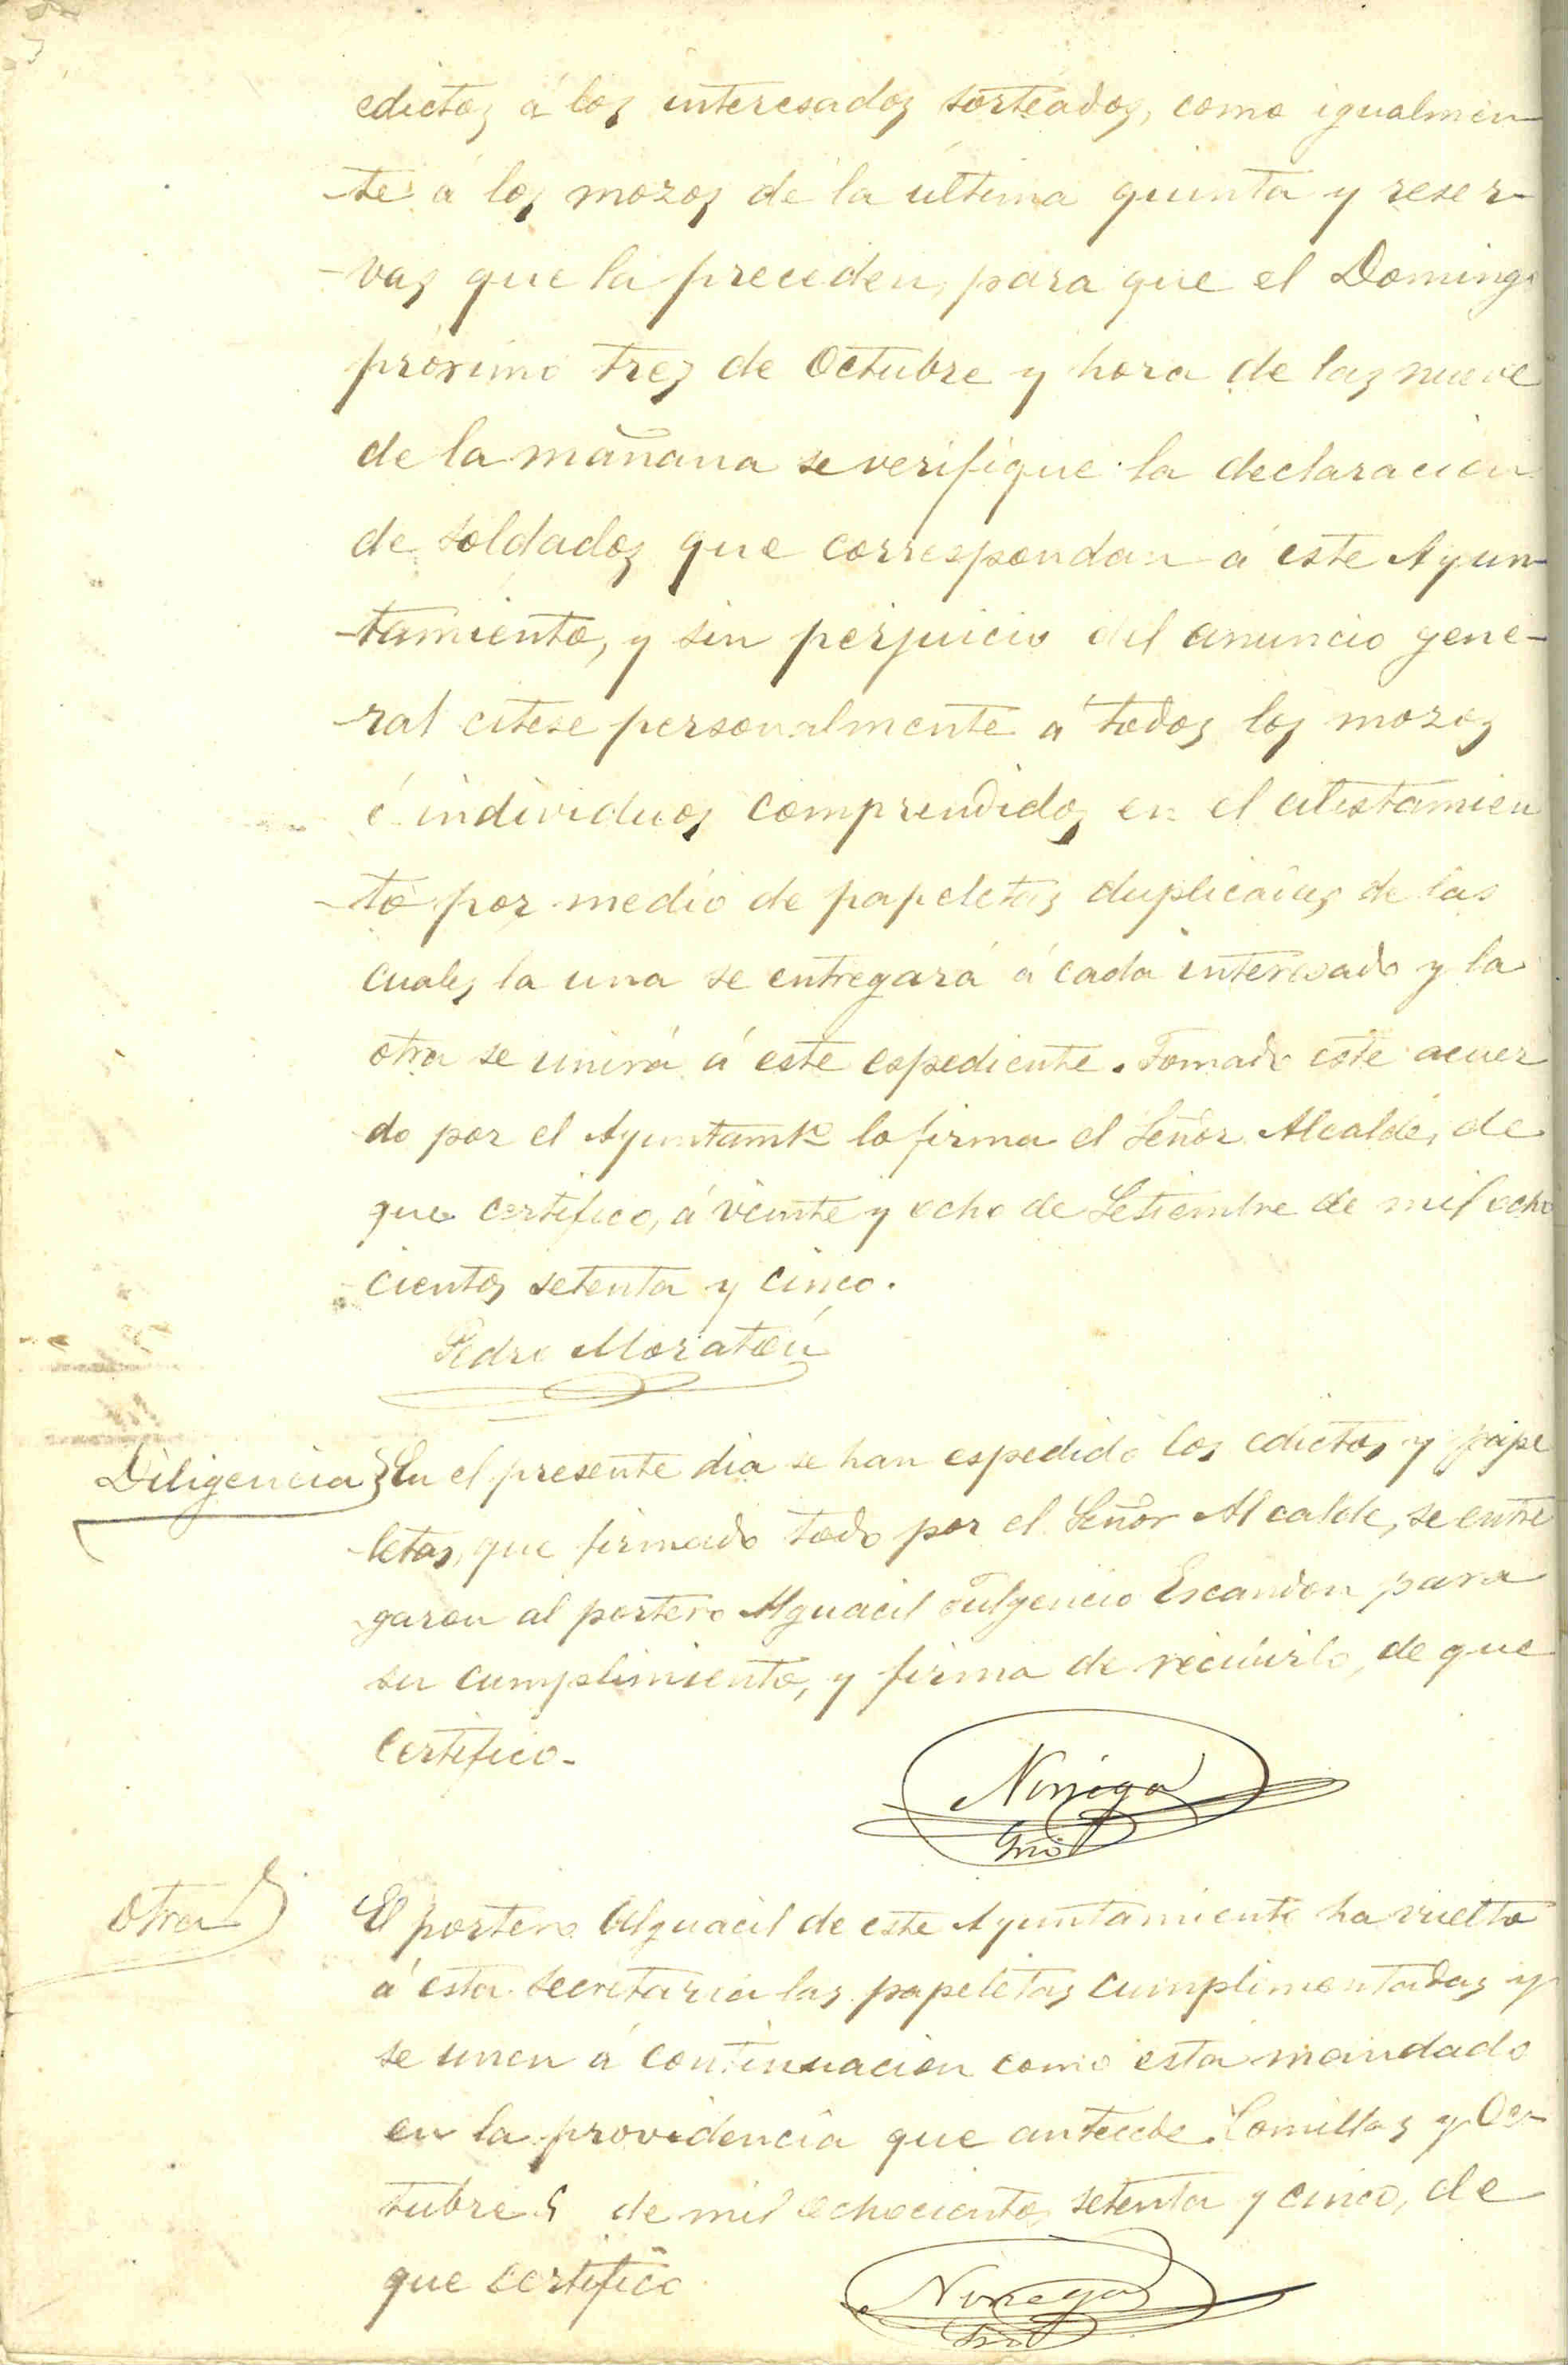 edictos á los interesados sorteados, como igualmen-
-te á los mozos de la última quinta y reser-
-vas que la preceden, para que el Domingo
próximo tres de Octubre y hora de las nueve
de la mañana se verifique la declaracion
de soldados que correspondan á este Ayun-
-tamiento, y sin perjuicio del anuncio gene-
-ral citese personalmente á todos los mozos
é individuos comprendidos en el alistamien
-to por medio de papeletas duplicadas de las
cuales la una se entregará á cada interesado y la
otra se unirá á este espediente. Tomado este acuer
do por el Ayuntamto lo firma el Señor Alcalde, de
que certifico, á veinte y ocho de Setiembre de mil ocho
-cientos setenta y cinco.
Pedro Moratón
Diligencia } En el presente dia se han espedido los edictos y pape
-letas, que firmado todo por el Señor Alcalde, se entre
garon al portero Alguacil Fulgencio Escandon para
su cumplimiento, y firma de recibirlo, de que
certifico-
Noriega
Srio
Otra } El portero Alguacil de este Ayuntamiento ha vuelto
á esta secretaria las papeletas cumplimentadas y
se unen á continuacion como está mandado
en la providencia que antecede. Comillas y Oc-
tubre de mil ochocientos setenta y cinco, de
que certifico
Noriega
Srio